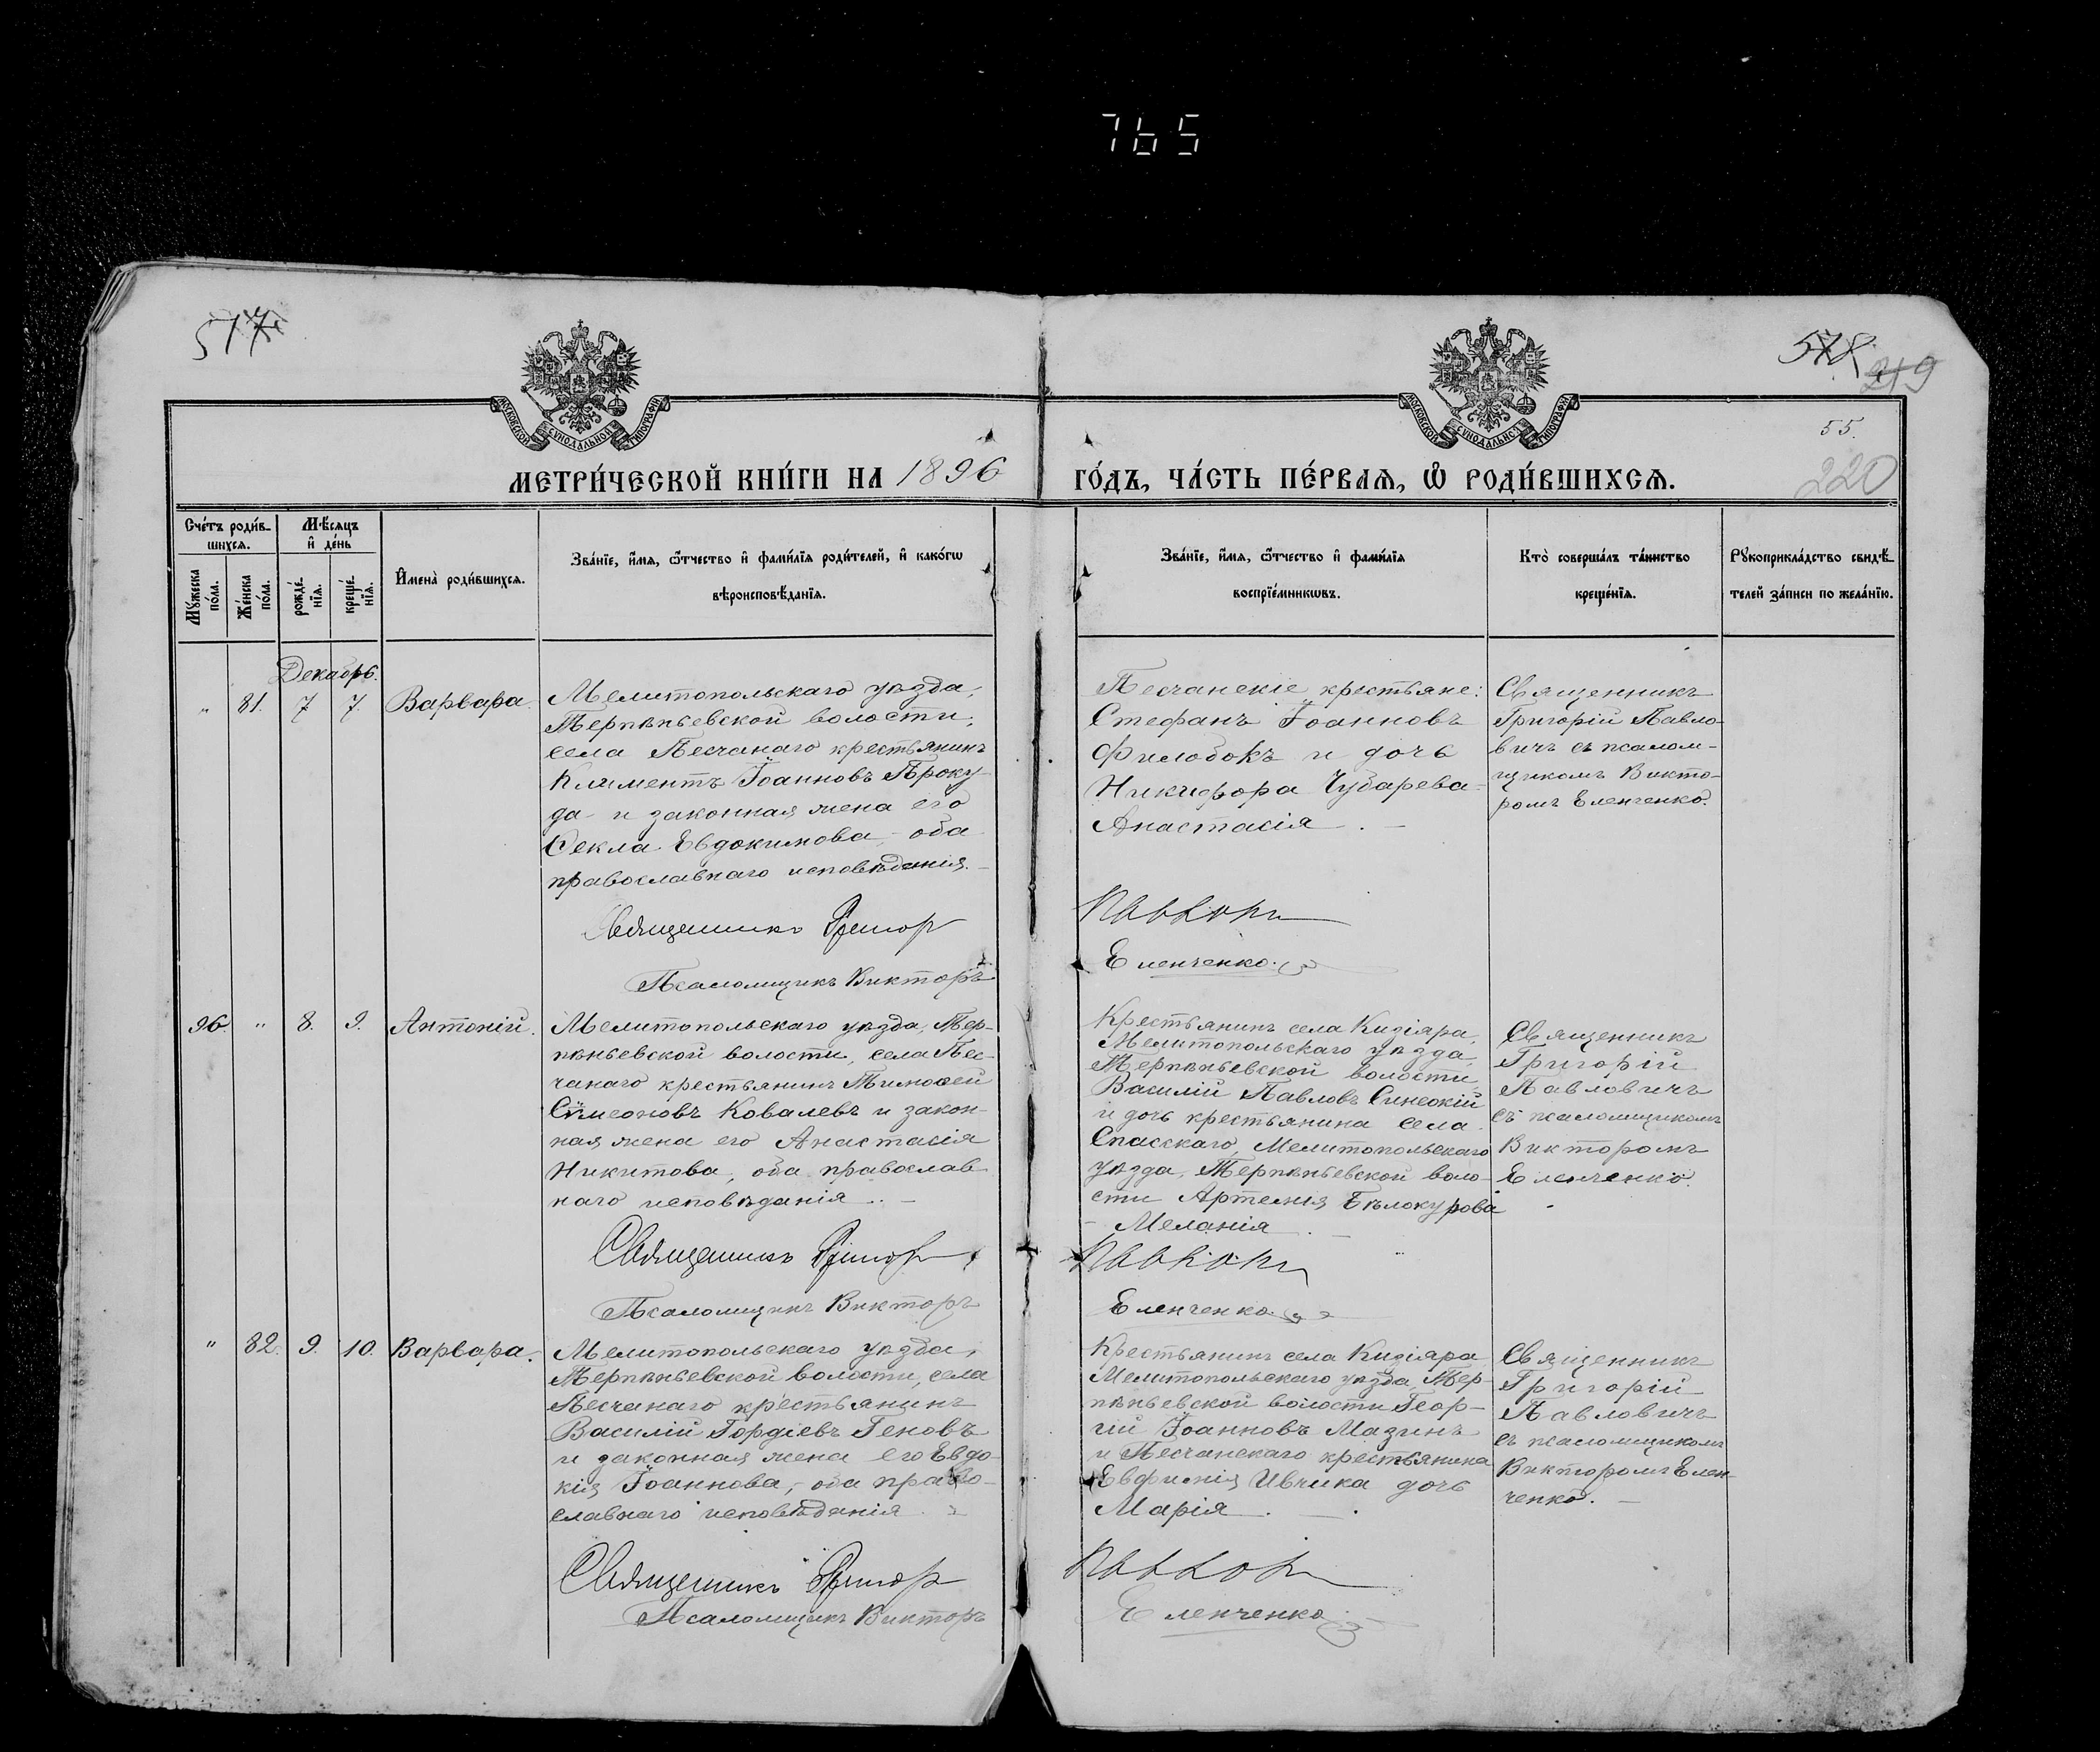 765
517
578
219
МОСКОВСКОЙ СѴНОДАЛЬНОЙ ТИПОГРАФІИ
МОСКОВСКОЙ СѴНОДАЛЬНОЙ ТИПОГРАФІИ
55.
220
МЕТРИ́ЧЕСКОЙ КНИ́ГИ НА 1896 ГО́ДЪ, ЧА́СТЬ ПЕ́РВАѦ, Ѡ҆ РОДИ́ВШИХСѦ.
Сче́тъ роди́в-
шихсѧ.
Мѣ́сѧцъ
и҆ де́нь
Мꙋ́жеска
по́ла.
Же́нска
пола.
рожде́-
нїѧ.
креще́-
нїѧ.
И҆мена̀ роди́вшихсѧ.
Зва́нїе, и҆́мѧ, ѻ҆́тчество и҆ фамѝлїѧ роди́телей, и҆ како́гѡ
вѣроисповѣ́данїѧ.
Зва́нїе, и҆́мѧ, ѻ҆́тчество и҆ фамѝлїѧ
воспрїе́мникѡвъ.
Кто̀ соверша́лъ та́инство
креще́нїѧ.
Рꙋкоприкла́дство свидѣ́-
телей за́писи по жела́нїю.
Декабрь.
" 81. 7 7. Варвара.
Мелитопольскаго уѣзда,
Терпѣньевской волости,
села Песчанаго крестьянинъ
Климентъ Іоанновъ Проку-
да и законная жена его
Ѳекла Евдокимова, оба
православнаго исповѣданія. –
Священникъ Григор
Псаломщикъ Викторъ
Песчанскіе крестьяне:
Стефанъ Іоанновъ
Филобокъ и дочь
Никифора Чубарева –
Анастасія. –
Павлови
Еленченко.
Священникъ
Григорій Павло-
вичъ съ псалом-
щикомъ Викто-
ромъ Еленченко.
96. " 8. 9. Антоній.
Мелитопольскаго уѣзда, Тер-
пѣньевской волости, села Пес-
чанаго крестьянинъ Тимоѳей
Сѵмеоновъ Ковалевъ и закон-
ная жена его Анастасія
Никитова, оба православ-
наго исповѣданія. –
Священникъ Григор
Псаломщикъ Викторъ
Крестьянинъ села Кизіяра,
Мелитопольскаго уѣзда,
Терпѣньевской волости,
Василій Павловъ Синеокій
и дочь крестьянина села
Спасскаго, Мелитопольскаго
уѣзда, Терпѣньевской воло-
сти Артемія Бѣлокурова
– Меланія. –
Павлови
Еленченко
Священникъ
Григорій
Павловичъ
съ псаломщикомъ
Викторомъ
Еленченко.
" 82. 9. 10. Варвара.
Мелитопольскаго уѣзда,
Терпѣньевской волости, села
Песчанаго крестьянинъ
Василій Гордіевъ Геновъ
и законная жена его Евдо-
кія Іоаннова, – оба право-
славнаго исповѣданія.
Священникъ Григор
Псаломщикъ Викторъ
Крестьянинъ села Кизіяра
Мелитопольскаго уѣзда, Тер-
пѣньевской волости Геор-
гій Іоанновъ Мазинъ
и Песчанскаго крестьянина
Евфимія Ивчика дочь
Марія. –
Павлови
Еленченко.
Священникъ
Григорій
Павловичъ
съ псаломщикомъ
Викторомъ Елен-
ченко. –